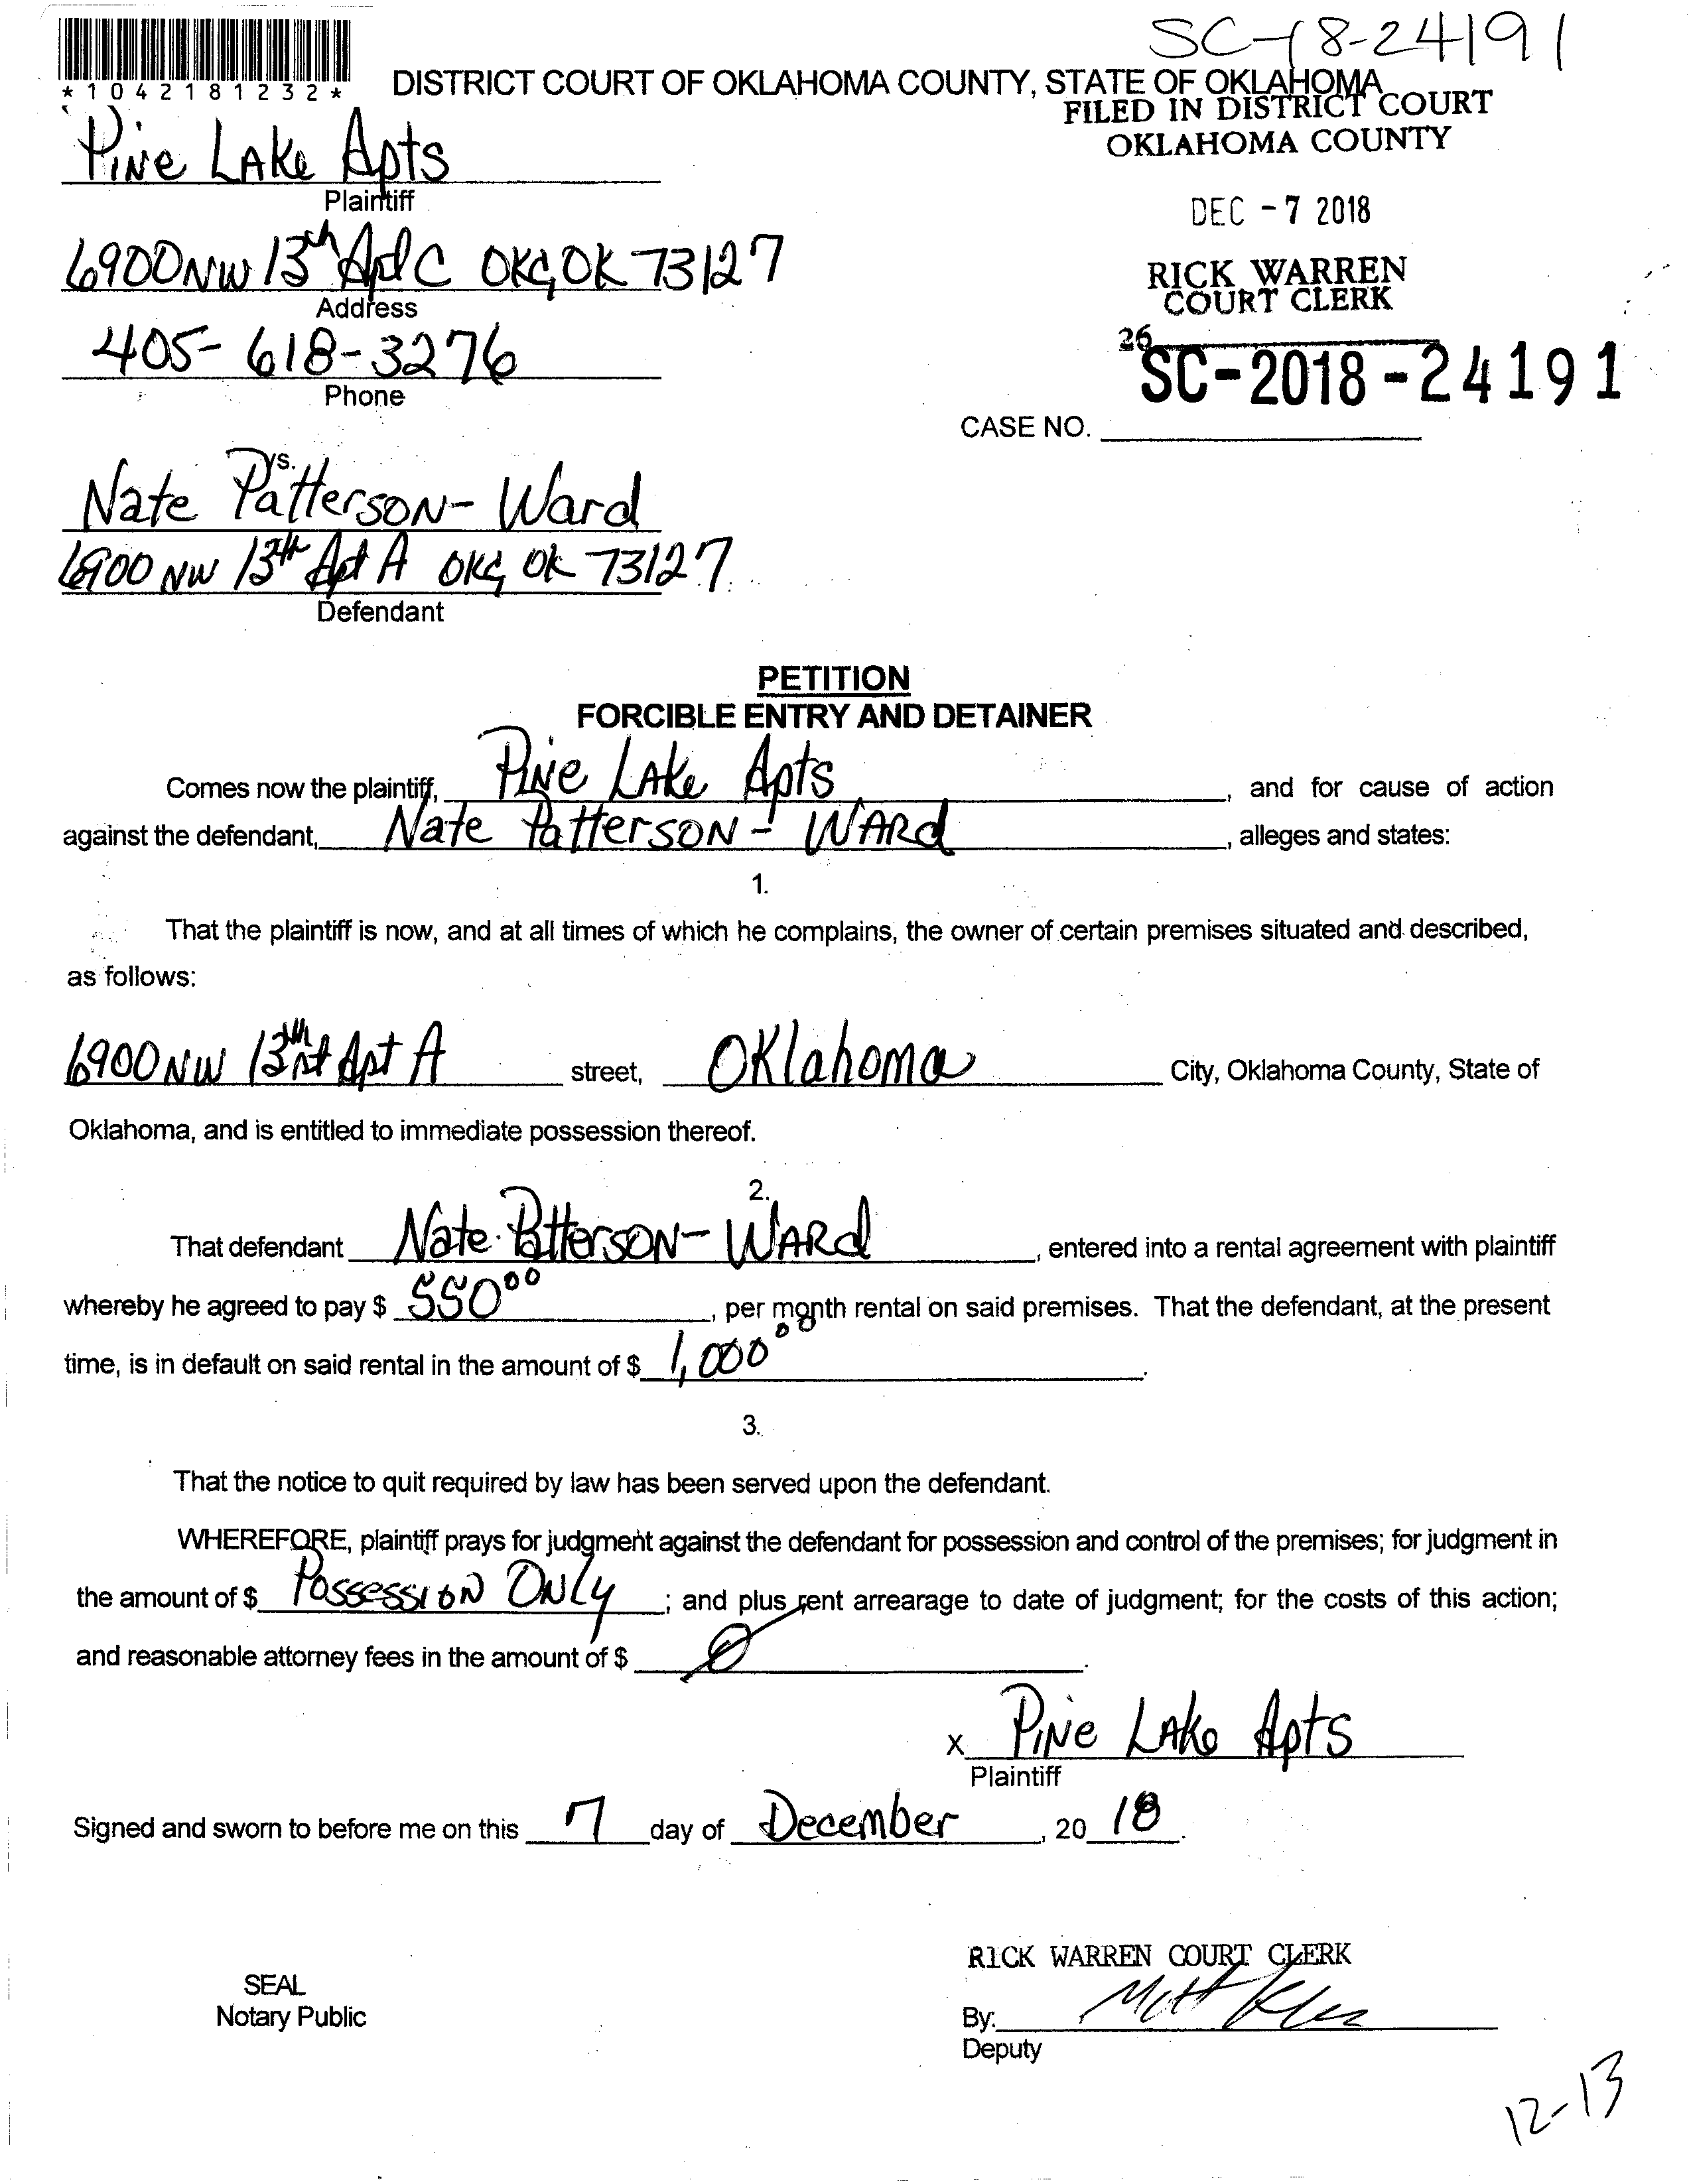 SC-18-24191
*1042181232*
DISTRICT COURT OF OKLAHOMA COUNTY, STATE OF OKLAHOMA
FILED IN DISTRICT COURT
OKLAHOMA COUNTY
Pine Lake Apts
Plaintiff
DEC -7 2018
6900 NW 13th Apt C OKC, OK 73127
Address
RICK WARREN
COURT CLERK
405-618-3276
Phone
26
SC-2018-24191
CASE NO.
vs.
Nate Patterson-Ward
6900 NW 13th Apt A OKC, OK 73127
Defendant
PETITION
FORCIBLE ENTRY AND DETAINER
Comes now the plaintiff, Pine Lake Apts, and for cause of action
against the defendant, Nate Patterson-Ward, alleges and states:
1.
That the plaintiff is now, and at all times of which he complains, the owner of certain premises situated and described,
as follows:
6900 NW 13th st Apt A street, Oklahoma City, Oklahoma County, State of
Oklahoma, and is entitled to immediate possession thereof.
2.
That defendant Nate Patterson-Ward, entered into a rental agreement with plaintiff
whereby he agreed to pay $ 550 00, per month rental on said premises. That the defendant, at the present
time, is in default on said rental in the amount of $ 1,000 00.
3.
That the notice to quit required by law has been served upon the defendant.
WHEREFORE, plaintiff prays for judgment against the defendant for possession and control of the premises; for judgment in
the amount of $ Possession Only; and plus rent arrearage to date of judgment; for the costs of this action;
and reasonable attorney fees in the amount of $ 0.
x Pine Lake Apts
Plaintiff
Signed and sworn to before me on this 7 day of December, 2018.
RICK WARREN COURT CLERK
SEAL
Notary Public
By:
Deputy
12-13